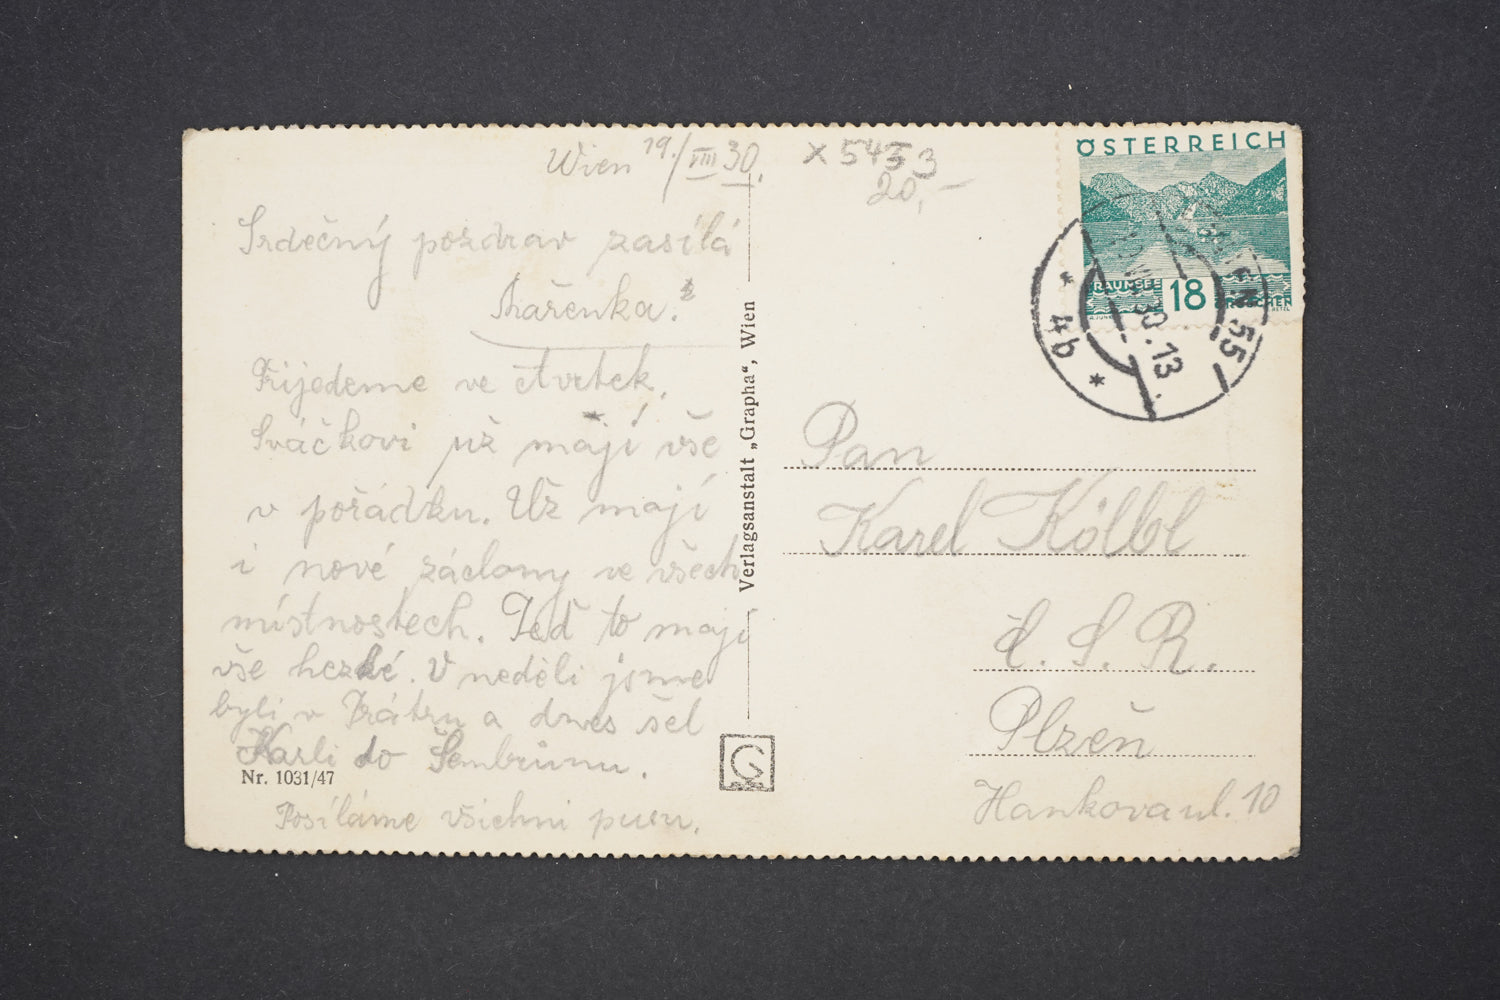 Wien 19./VIII 30.
× 5453
20,-
Srdečný pozdrav zasílá
Mařenka.
Přijedeme ve čtvrtek.
Sváčkovi už mají vše
v pořádku. Už mají
i nové záclony ve všech
místnostech. Teď to mají
vše hezké. V neděli jsme
byli v Prátru a dnes šel
Karli do Šenbrunu.
Posíláme všichni pusu.
Nr. 1031/47
Verlagsanstalt „Grapha“, Wien
G
ÖSTERREICH
TRAUNSEE 18 GROSCHEN
55
30.13
* 4b *
Pan
Karel Kölbl
Č. S. R.
Plzeň
Hankova ul. 10